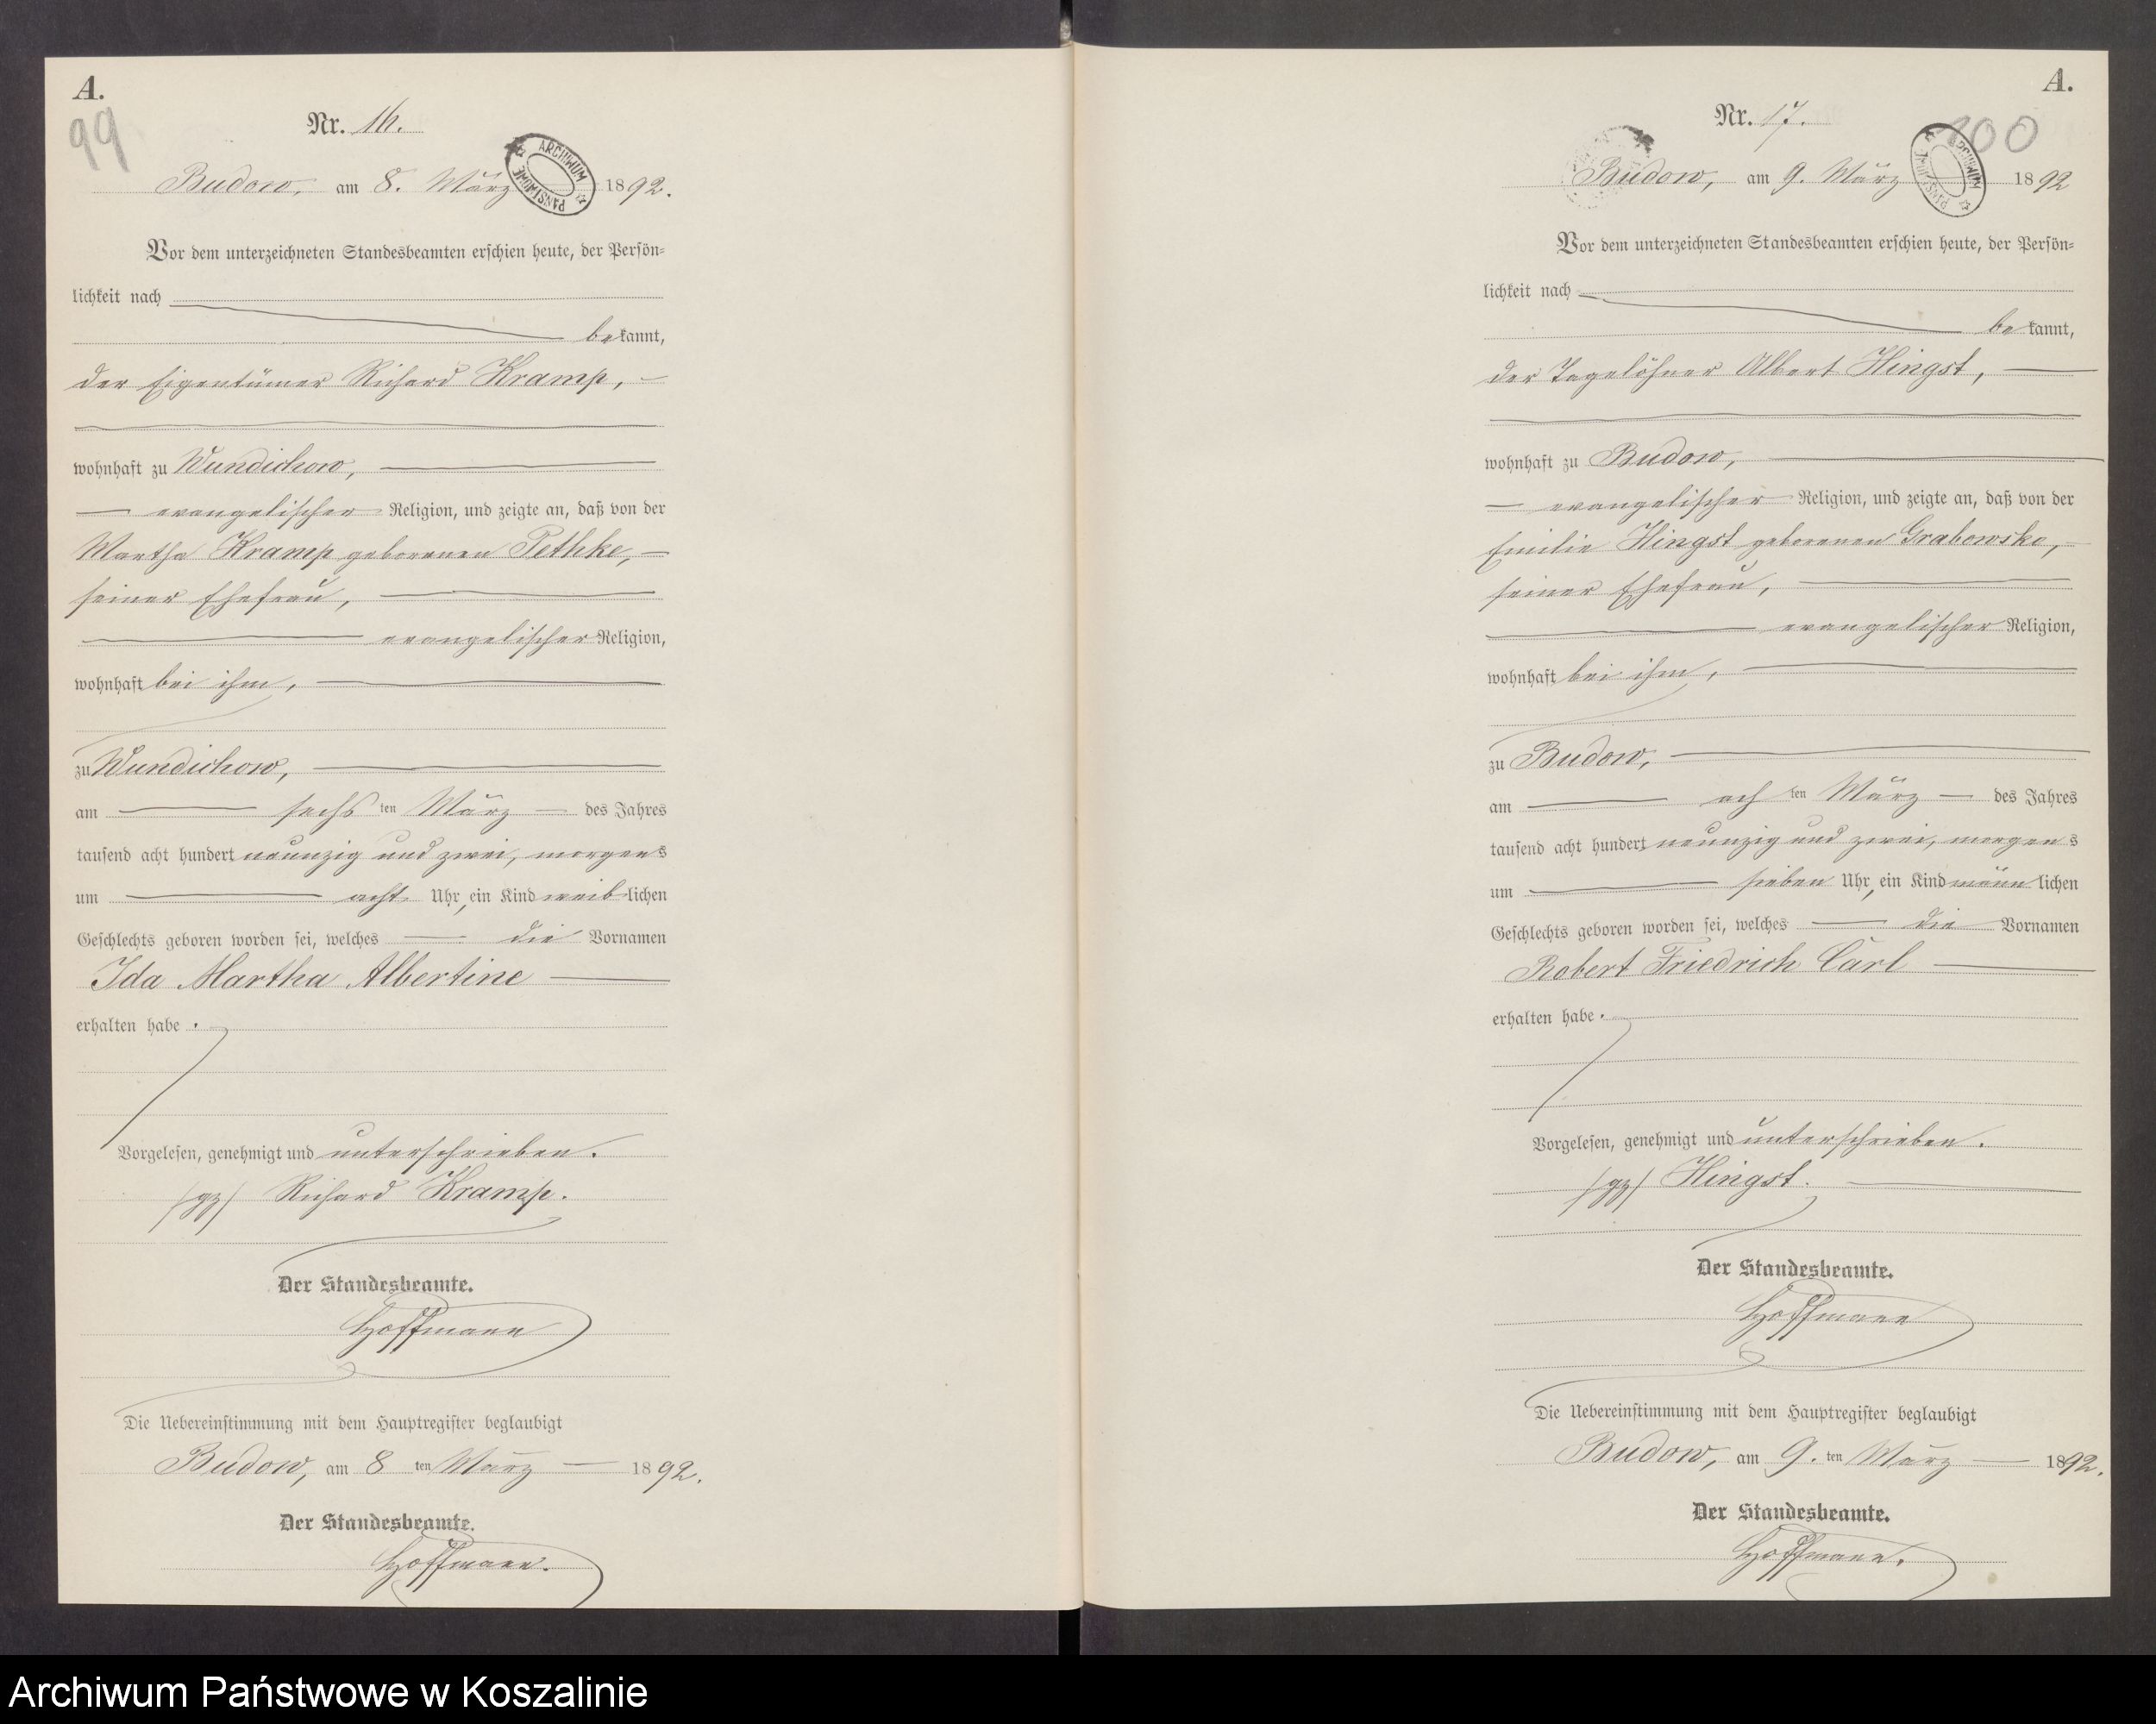 A.
99
Nr. 16.
ARCHIWUM PAŃSTWOWE
Budow, am 8. März 1892.
Vor dem unterzeichneten Standesbeamten erschien heute, der Persön=
lichkeit nach
bekannt,
der Eigentümer Richard Kramp,
wohnhaft zu Wundichow,
evangelischer Religion, und zeigte an, daß von der
Martha Kramp geborenen Pethke,
seiner Ehefrau,
evangelischer Religion,
wohnhaft bei ihm,
zu Wundichow,
am sechs ten März des Jahres
tausend acht hundert neunzig und zwei, morgens
um acht Uhr, ein Kind weiblichen
Geschlechts geboren worden sei, welches die Vornamen
Ida Martha Albertine
erhalten habe.
Vorgelesen, genehmigt und unterschrieben.
/gz/ Richard Kramp.
Der Standesbeamte.
Hoffmann
Die Uebereinstimmung mit dem Hauptregister beglaubigt
Budow, am 8 ten März 1892.
Der Standesbeamte.
Hoffmann.
A.
100
Nr. 17.
ARCHIWUM PAŃSTWOWE
Budow, am 9. März 1892
Vor dem unterzeichneten Standesbeamten erschien heute, der Persön=
lichkeit nach
bekannt,
der Tagelöhner Albert Hingst,
wohnhaft zu Budow,
evangelischer Religion, und zeigte an, daß von der
Emilie Hingst geborenen Grabowsko,
seiner Ehefrau,
evangelischer Religion,
wohnhaft bei ihm,
zu Budow,
am ach ten März des Jahres
tausend acht hundert neunzig und zwei, morgens
um sieben Uhr, ein Kind männlichen
Geschlechts geboren worden sei, welches die Vornamen
Robert Friedrich Carl
erhalten habe.
Vorgelesen, genehmigt und unterschrieben.
/gz/ Hingst.
Der Standesbeamte.
Hoffmann
Die Uebereinstimmung mit dem Hauptregister beglaubigt
Budow, am 9. ten März 1892.
Der Standesbeamte.
Hoffmann.
Archiwum Państwowe w Koszalinie